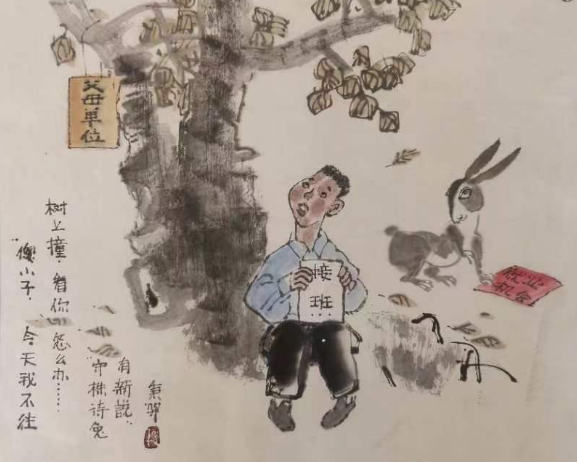 父母单位
接
班…
就业
机会
“傻小子，今天我不往
树上撞，看你怎么办……
守株待兔
有新说。